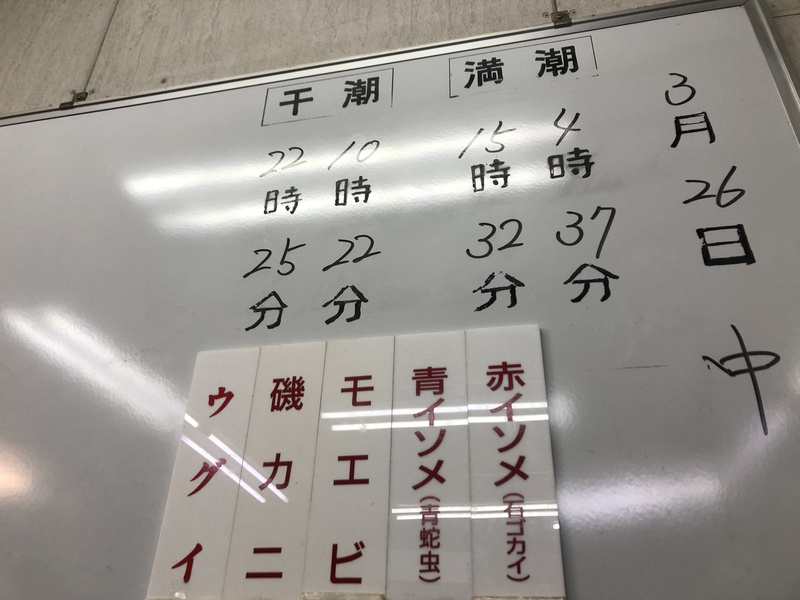 3月26日 中
満潮
4時37分
15時32分
干潮
10時22分
22時25分
赤イソメ(石ゴカイ)
青イソメ(青蛇虫)
モエビ
磯カニ
ウグイ